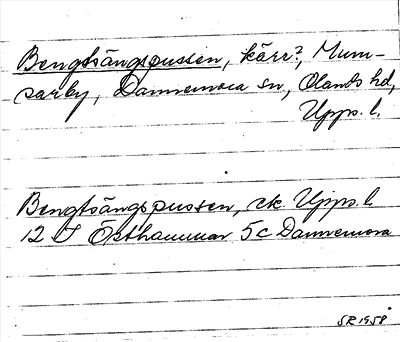 Bengtsängspussen, kärr?, Mum-
sarby, Dannemora sn, Olands hd,
Upps. l.
Bengtsängspussen, ek. Upps. l
12 I Östhammar 5c Dannemora
SR 1958